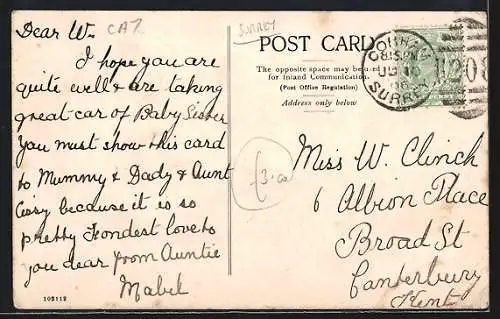 Dear W. CAT
SURREY
I hope you are
quite well & are taking
great car of Baby Sister
You must show this card
to Mummy & Dady & Aunt
Cissy because it is so
pretty Fondest love to
you dear from Auntie
Mabel
103112
POST CARD
The opposite space may be used
for Inland Communication.
(Post Office Regulation)
Address only below
COBHAM
8.15 PM
06
SURREY
208
£3.00
Miss W. Clinch
6 Albion Place
Broad St
Canterbury
Kent